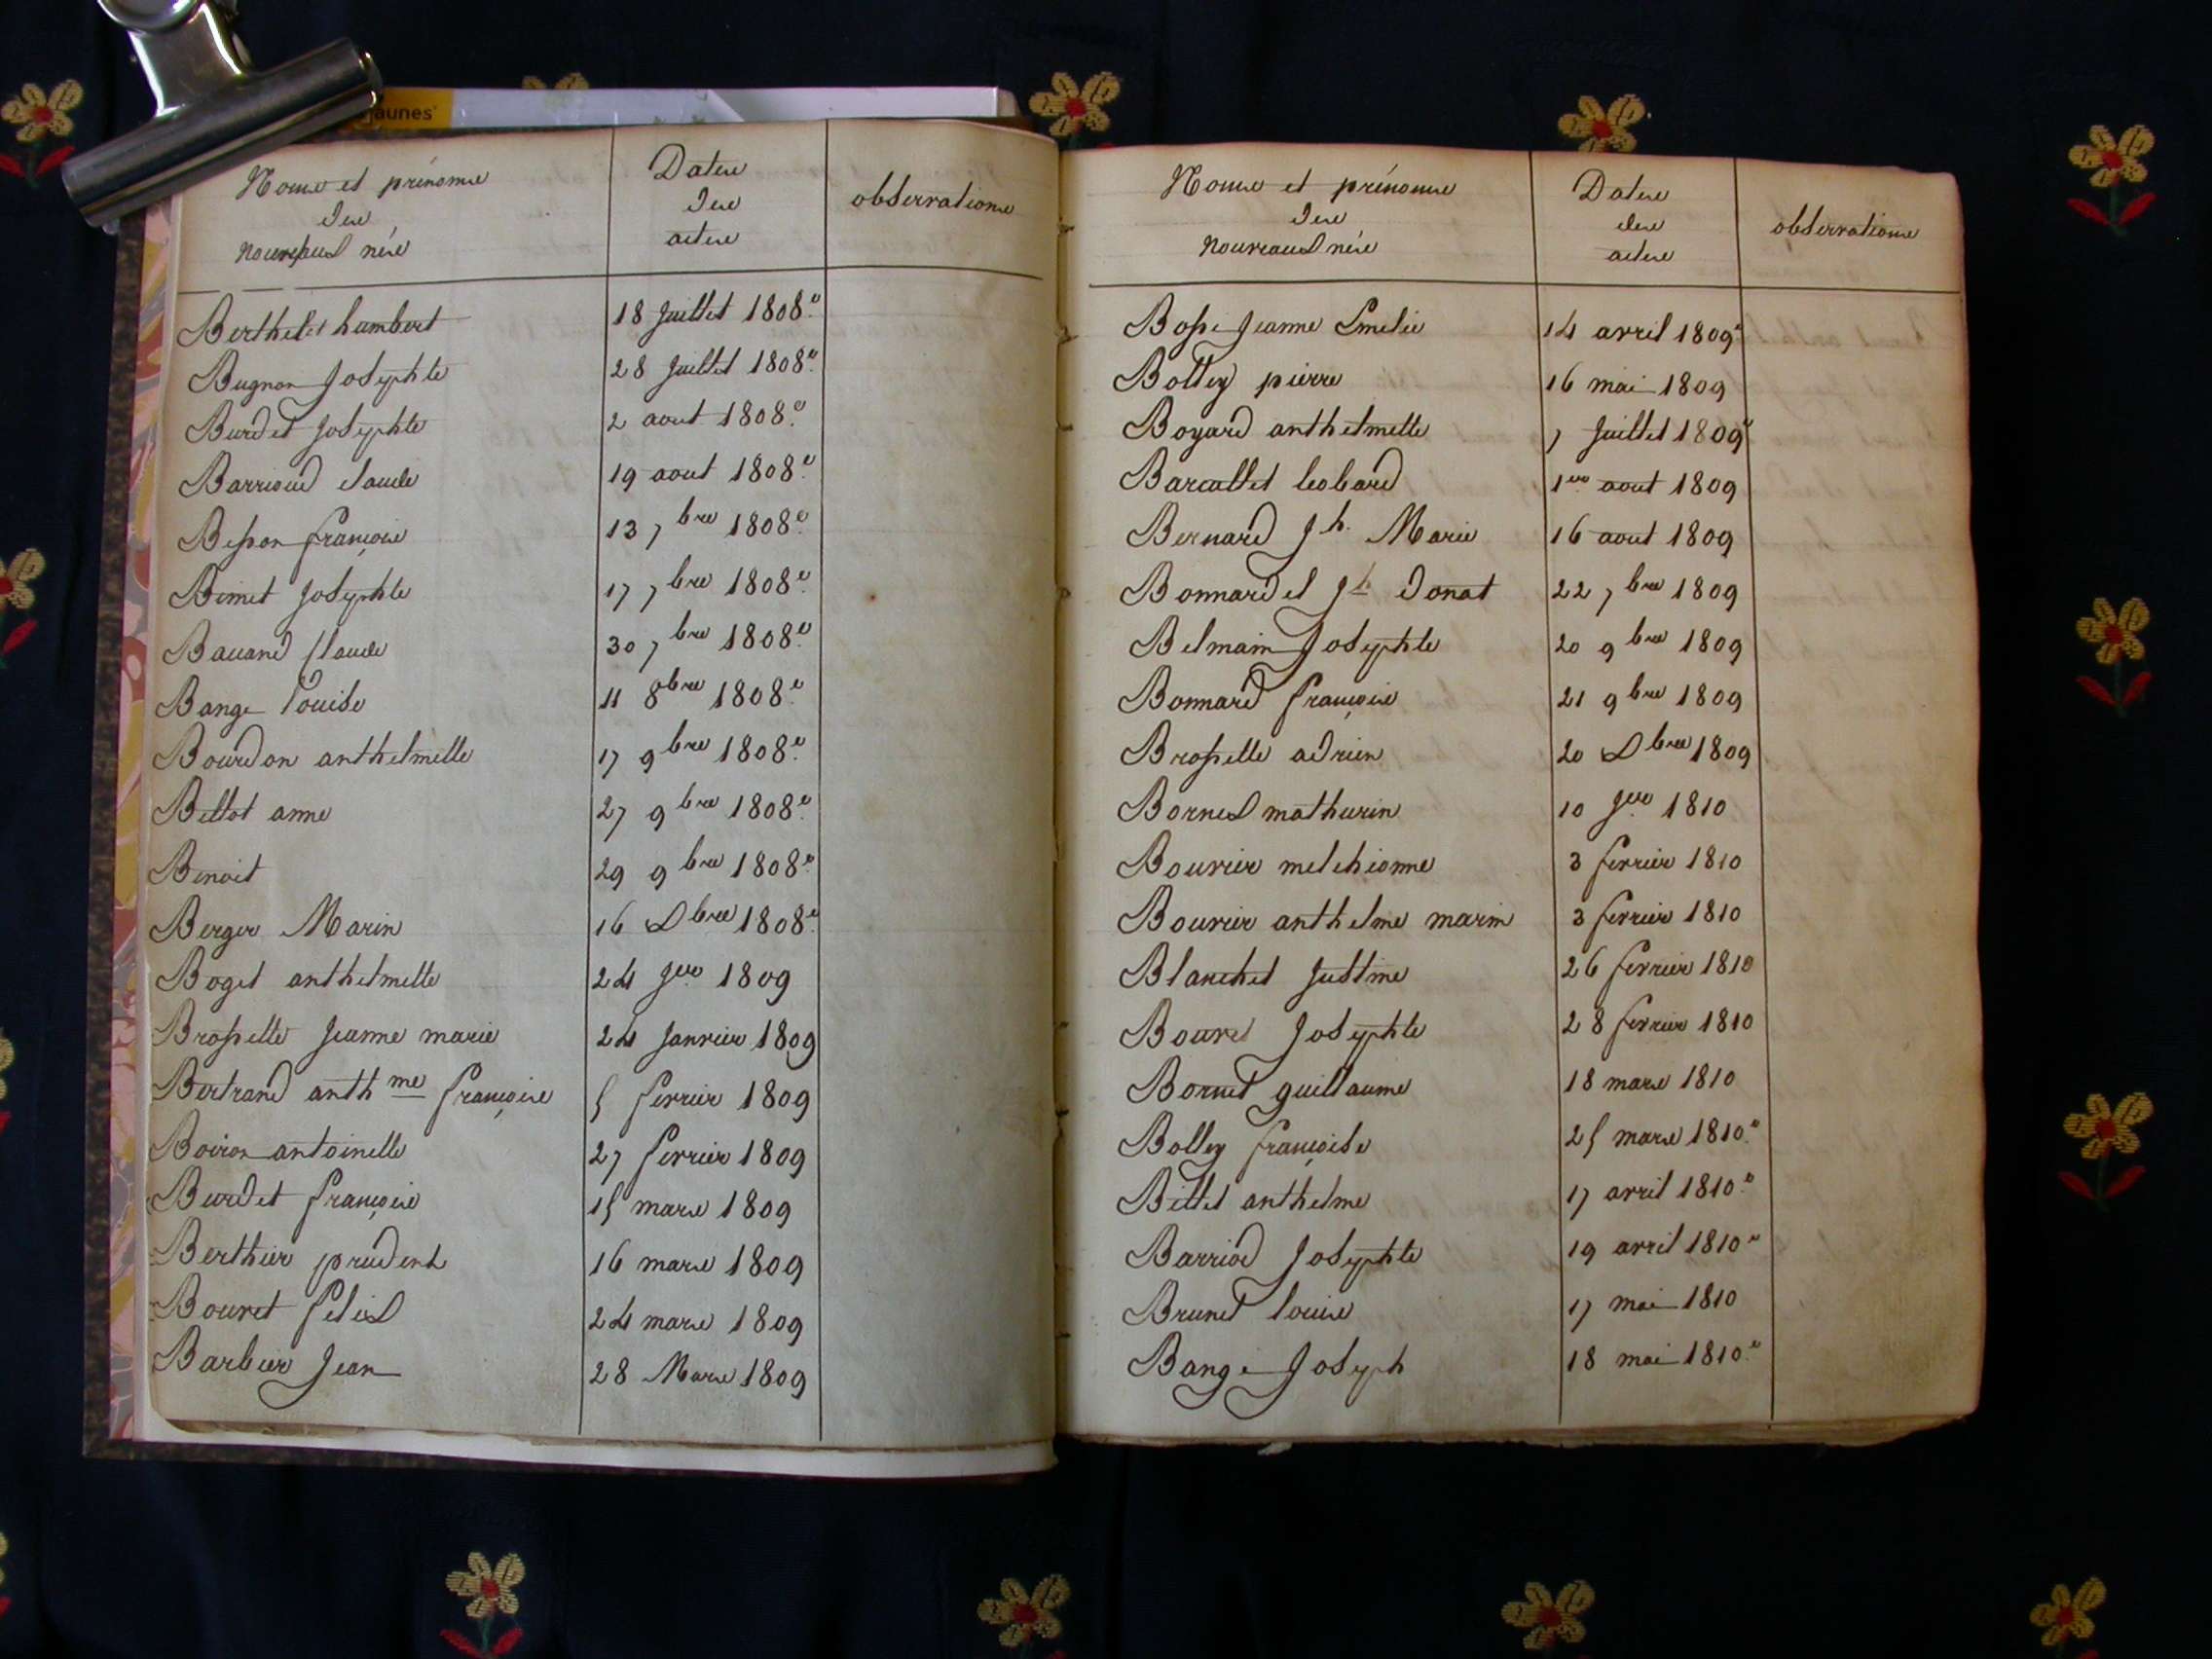 jaunes
Noms et prénoms
des
nouveaux nés
Dates
des
actes
observations
Berthelet humbert 18 Juillet 1808
Bugnon Josephte 28 Juillet 1808
Burdet Josephte 2 aout 1808
Barrioud claude 19 aout 1808
Besson françois 13 7bre 1808
Bimet Josephte 17 7bre 1808
Bavand Claude 30 7bre 1808
Bange Louise 11 8bre 1808
Bourdon anthelmette 17 9bre 1808
Billot anne 27 9bre 1808
Benoit 29 9bre 1808
Berger Marin 16 Xbre 1808
Boget anthelmette 24 Jer 1809
Brossette Jeanne marie 24 Janvier 1809
Bertrand anthme françoise 5 fevrier 1809
Boiron antoinette 27 fevrier 1809
Burdet françois 15 mars 1809
Berthier prudent 16 mars 1809
Bouvet felix 24 mars 1809
Barbier Jean 28 Mars 1809
Noms et prénoms
des
nouveaux nés
Dates
des
actes
observations
Bosse Jeanne Emelie 14 avril 1809
Bolley pierre 16 mai 1809
Boyard anthelmette 7 Juillet 1809
Barcallet leobard 1er aout 1809
Bernard Jh Marie 16 aout 1809
Bonnardel Jh donat 22 7bre 1809
Belmain Josephte 20 9bre 1809
Bonnard françois 21 9bre 1809
Brossette adrien 20 Xbre 1809
Bornex mathurin 10 Jer 1810
Bouvier melchionne 3 fevrier 1810
Bouvier anthelme marin 3 fevrier 1810
Blanchet Justine 26 fevrier 1810
Bouvet Josephte 28 fevrier 1810
Bornet guillaume 18 mars 1810
Bolley françoise 25 mars 1810
Billet anthelme 17 avril 1810
Barriod Josephte 19 avril 1810
Brunet louise 17 mai 1810
Bange Joseph 18 mai 1810